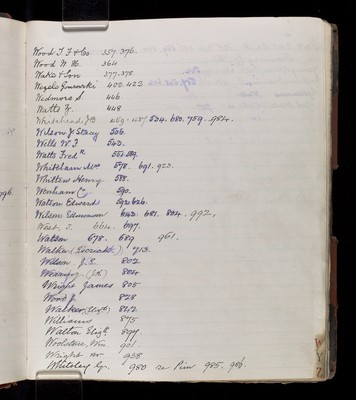 Wood T. F & Co. 357. 376.
Wood W. H. 364
Watts & Son 377. 378
402. 423
Wedmore S 446
Watts W. 448
Whitehead J B 459. 487. 534. 680. 759. 984.
Wilson J. Stacy 506.
Wells W. J 543.
Watts Fred 
Whitcham Mrs 578. 691. 923.
Whitten Henry 588.
Wenham C 590.
Watson Edward 592. 626.
Wilson Edmonson 642. 681. 804. 992,
West. J. 664. 697.
Watson 678. 689 961.
Walker 713.
Wilson J. E. 802
804
Wright James 805
Wood J. 828
Walker (Eliz) 842
Williams 875
Walton Eliz. 897.
Woolstone, Wm. 901
Wright 938
Whiteley G. 980 re Pim 985. 986.
996.
W Y Z